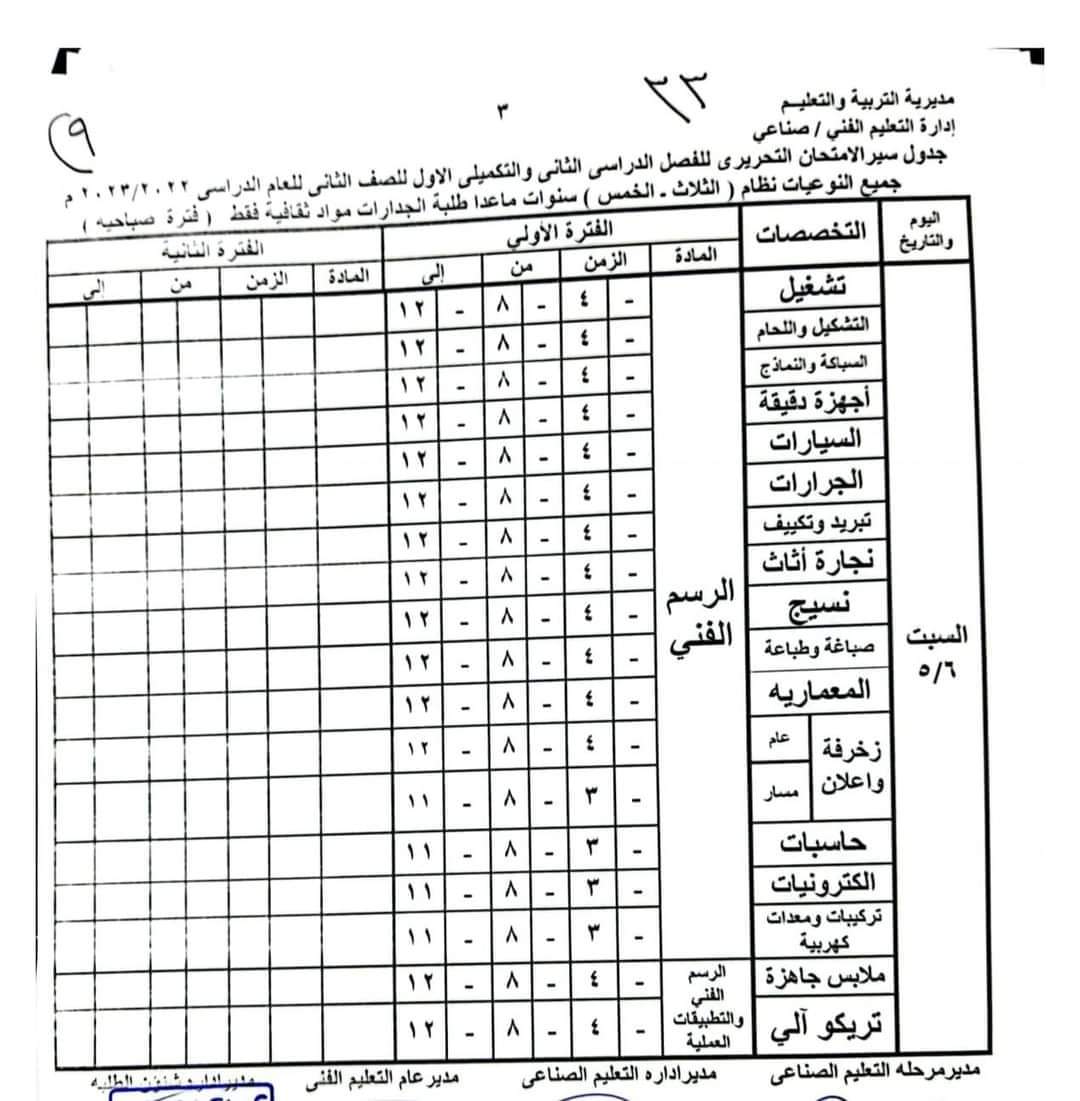 ٣٣
٣
٩
مديرية التربية والتعليم
إدارة التعليم الفني / صناعي
جدول سير الامتحان التحريرى للفصل الدراسى الثانى والتكميلى الاول للصف الثانى للعام الدراسى ٢٠٢٣/٢٠٢٢ م
جميع النوعيات نظام ( الثلاث - الخمس ) سنوات ماعدا طلبة الجدارات مواد ثقافية فقط ( فترة صباحيه )
اليوم والتاريخ التخصصات الفترة الأولي الفترة الثانية
المادة الزمن من إلى المادة الزمن من إلى
السبت ٥/٦
الرسم الفني
تشغيل - ٤ - ٨ - ١٢
التشكيل واللحام - ٤ - ٨ - ١٢
السباكة والنماذج - ٤ - ٨ - ١٢
أجهزة دقيقة - ٤ - ٨ - ١٢
السيارات - ٤ - ٨ - ١٢
الجرارات - ٤ - ٨ - ١٢
تبريد وتكييف - ٤ - ٨ - ١٢
نجارة أثاث - ٤ - ٨ - ١٢
نسيج - ٤ - ٨ - ١٢
صباغة وطباعة - ٤ - ٨ - ١٢
المعماريه - ٤ - ٨ - ١٢
زخرفة واعلان عام - ٤ - ٨ - ١٢
مسار - ٣ - ٨ - ١١
حاسبات - ٣ - ٨ - ١١
الكترونيات - ٣ - ٨ - ١١
تركيبات ومعدات كهربية - ٣ - ٨ - ١١
الرسم الفني والتطبيقات العملية
ملابس جاهزة - ٤ - ٨ - ١٢
تريكو آلي - ٤ - ٨ - ١٢
مدير مرحله التعليم الصناعى مدير اداره التعليم الصناعى مدير عام التعليم الفنى مدير اداره شئون الطلبه